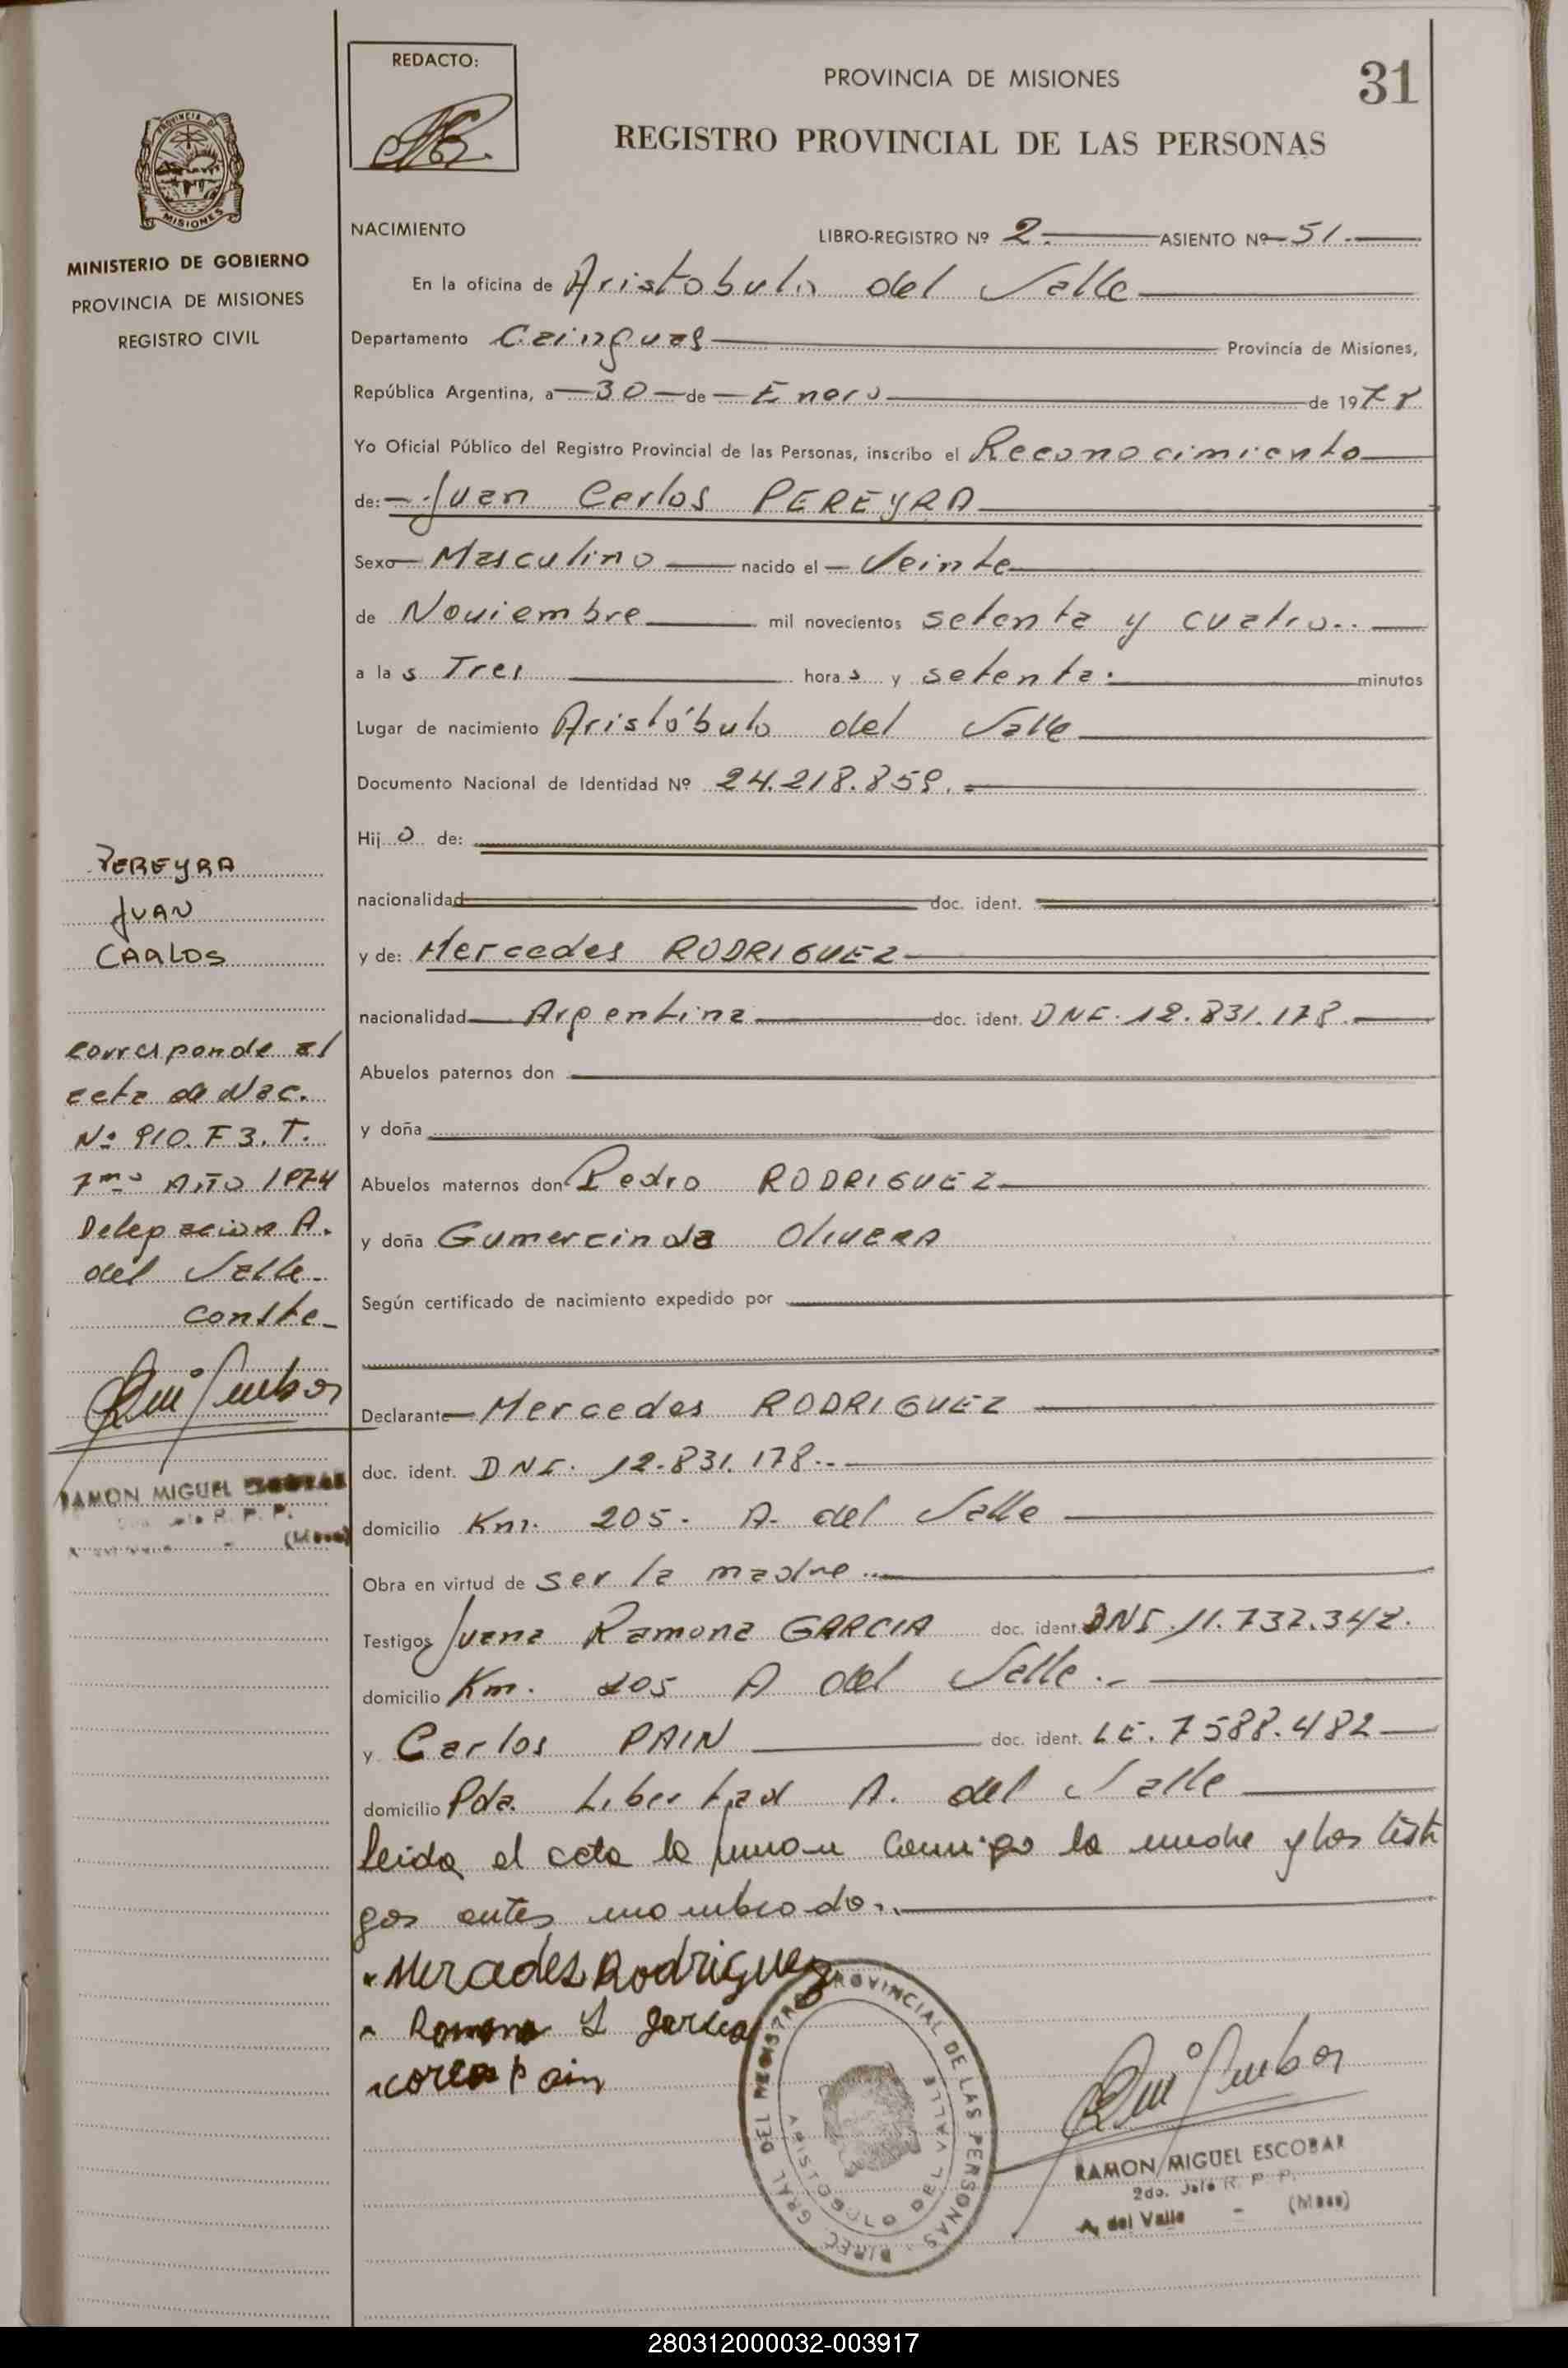 REDACTO:
PROVINCIA DE MISIONES
31
REGISTRO PROVINCIAL DE LAS PERSONAS
PROVINCIA DE
MISIONES
MINISTERIO DE GOBIERNO
PROVINCIA DE MISIONES
REGISTRO CIVIL
NACIMIENTO
LIBRO-REGISTRO Nº 2. ASIENTO Nº 51.
En la oficina de Aristobulo del Valle
Departamento Cainguas Provincia de Misiones,
República Argentina, a 30 de Enero de 197
Yo Oficial Público del Registro Provincial de las Personas, inscribo el Reconocimiento
de: Juan Carlos PEREYRA
Sexo Masculino nacido el Veinte
de Noviembre mil novecientos setenta y cuatro..
a la s Tres hora s y setenta. minutos
Lugar de nacimiento Aristóbulo del Valle
Documento Nacional de Identidad Nº 24.218.859.
Hij o de:
nacionalidad doc. ident.
y de: Mercedes RODRIGUEZ
nacionalidad Argentina doc. ident. DNI. 12.831.178.
Abuelos paternos don
y doña
Abuelos maternos don Pedro RODRIGUEZ
y doña Gumercinda OliveRA
Según certificado de nacimiento expedido por
Declarante Mercedes RODRIGUEZ
doc. ident. DNI. 12.831.178..
domicilio Km. 205. A. del Valle
Obra en virtud de ser la madre..
Testigos Juana Ramona GARCIA doc. ident. DNI. 11.737.342.
domicilio Km. 205 A del Valle..
y Carlos PAIN doc. ident. LE. 7588.482
domicilio Pda. Libertad A. del Valle
leida el acta la firman conmigo la madre y los testi
gos antes nombrados..
Mercades Rodriguez
Ramona J garcia
Pain
PEREYRA
JUAN
CARLOS
Corresponde al
acta de Nac.
Nº 910. F 3. T.
7mo AÑO 1974
Delegacion A.
del Valle
conste
RAMON MIGUEL ESCOBAR
R. P. P.
(Mnes)
DIREC. GRAL. DEL REGISTRO PROVINCIAL DE LAS PERSONAS
ARISTOBULO DEL VALLE
RAMON MIGUEL ESCOBAR
2do. Jefe R. P. P.
A. del Valle - (Mnes)
280312000032-003917